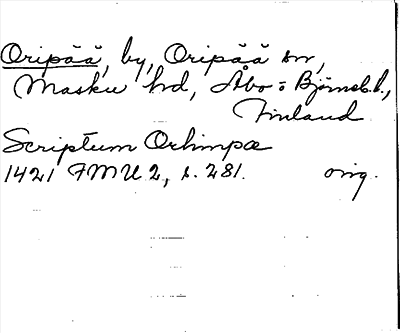 Oripää, by, Oripää sn,
Masku hd, Åbo o Björneb. l.,
Finland
Scriptum Orhinpæ
1421 FMU 2, s. 281. orig.